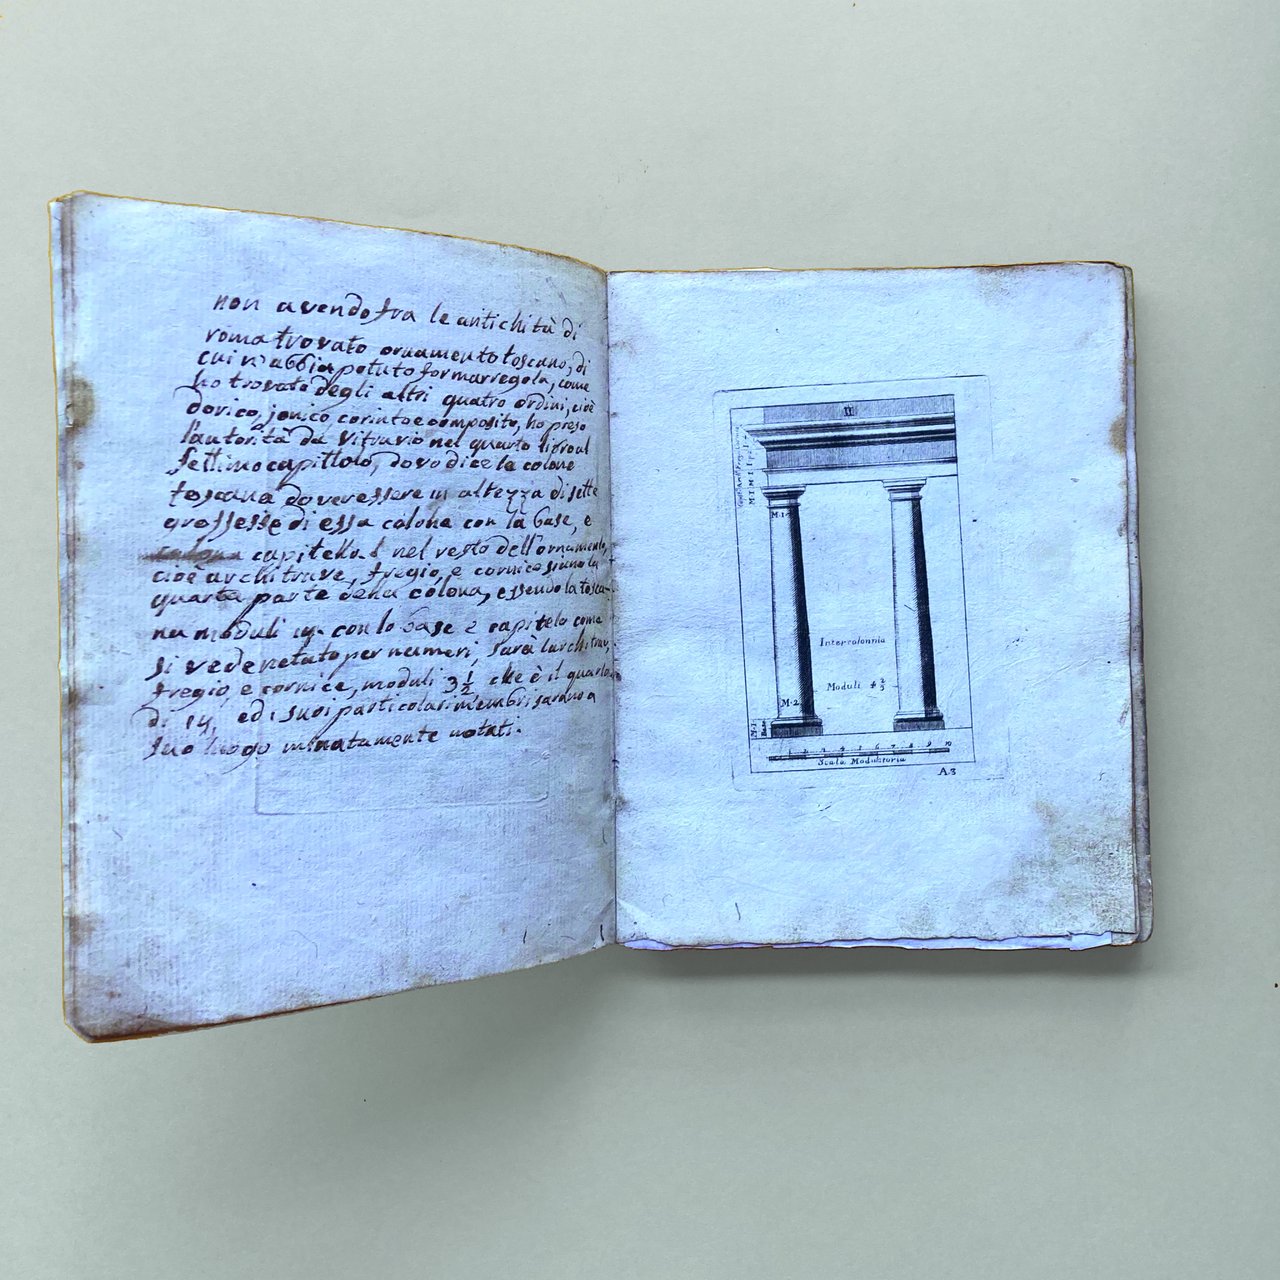 non avendo fra le antichità di
roma trovato ornamento toscano, di
cui n'abbia potuto formar regola, come
ho trovato degli altri quatro ordini, cioè
dorico, jonico, corinto e composito, ho preso
l'autorità da Vitruvio nel quarto libro al
settimo capittolo, dovo dice la colone
toscana dover essere in altezza di sette
grossesse di essa colona con la base, e
capitello. nel resto dell'ornamento,
cioè architrave, fregio, e cornice siano la
quarta parte della colona, essendo la tosca-
na moduli 14. con la base e capitelo come
si vede notato per numeri, sarà l'architrave,
fregio, e cornice, moduli 3 1/2 che è il quarto
di 14, ed i suoi particolari membri sarano a
suo luogo minutamente notati.
II
M. 1
Intercolonnio
Moduli 4 2/3
M. 2
M. 1.
Base
1 2 3 4 5 6 7 8 9 10
Scala Modulatoria
A.3